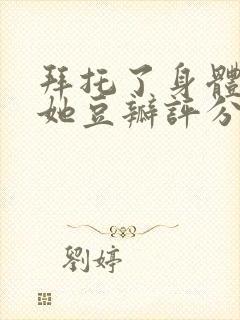 拜托了身體
她豆瓣評分
劉婷